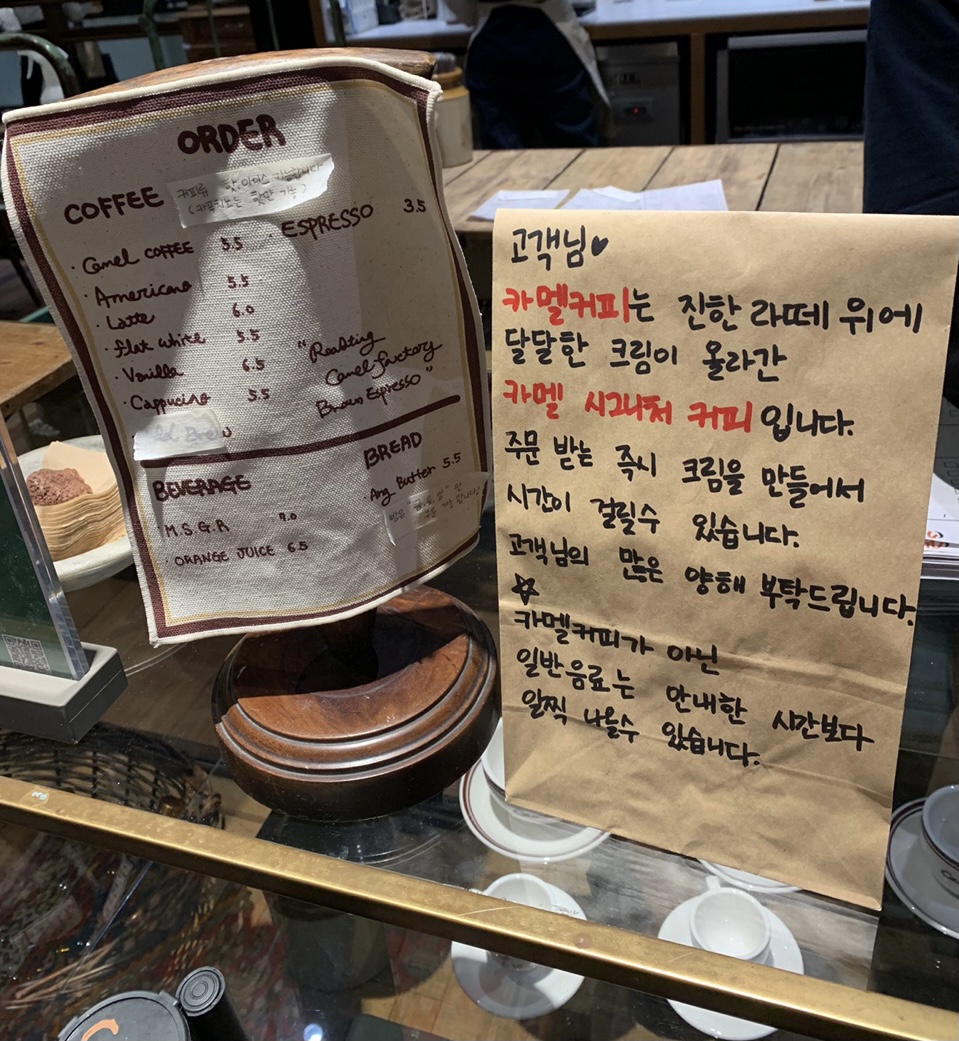 ORDER
COFFEE
커피류 핫, 아이스 가능합니다
(카멜커피는 핫만 가능)
ESPRESSO 3.5
· Camel COFFEE 5.5
· Americano 5.5
· Latte 6.0
· flat white 5.5
· Vanilla 6.5
· Cappucino 5.5
"Roasting
Camel factory
Brown Espresso"
BEVERAGE
· M.S.G.R 7.0
· ORANGE JUICE 6.5
BREAD
Ang Butter 5.5
고객님♥
카멜커피는 진한 라떼 위에
달달한 크림이 올라간
카멜 시그니처 커피 입니다.
주문 받는 즉시 크림을 만들어서
시간이 걸릴수 있습니다.
고객님의 많은 양해 부탁드립니다.
☆
카멜커피가 아닌
일반음료는 안내한 시간보다
일찍 나올수 있습니다.